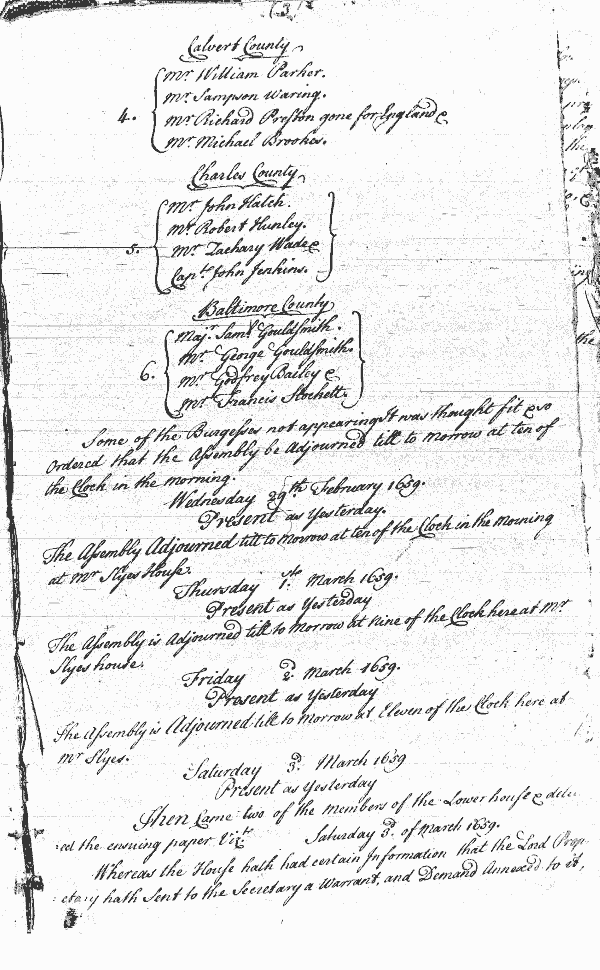 (3)
Calvert County
Mr. William Parker.
Mr. Sampson Waring.
4. Mr. Richard Preston gone for England
Mr. Michael Brookes.
Charles County
Mr. John Hatch.
Mr. Robert Hunley.
5. Mr. Zachary Wade
Capt. John Jenkins.
Baltimore County
Majr. Saml. Gouldsmith.
Mr. George Gouldsmith.
6. Mr. Godfrey Bailey
Mr. Francis Stockett.
Some of the Burgesses not appearing It was thought fit & so
Ordered that the Assembly be Adjourned till to morrow at ten of
the Clock in the morning.
Wednesday 29th February 1659.
Present as Yesterday.
The Assembly Adjourned till to morrow at ten of the Clock in the morning
at Mr Slyes House.
Thursday 1st. March 1659.
Present as Yesterday
The Assembly is Adjourned till to morrow at Nine of the Clock here at Mr
Slyes house.
Friday 2d. March 1659.
Present as Yesterday
The Assembly is Adjourned till to morrow at Eleven of the Clock here at
Mr Slyes.
Saturday 3d. March 1659
Present as Yesterday
Then Came two of the Members of the Lower house &
the ensuing paper Vizt. Saturday 3d. of March 1659.
Whereas the House hath had certain Information that the Lord Prop
etary hath Sent to the Secretary a Warrant, and Demand Annexed to it,